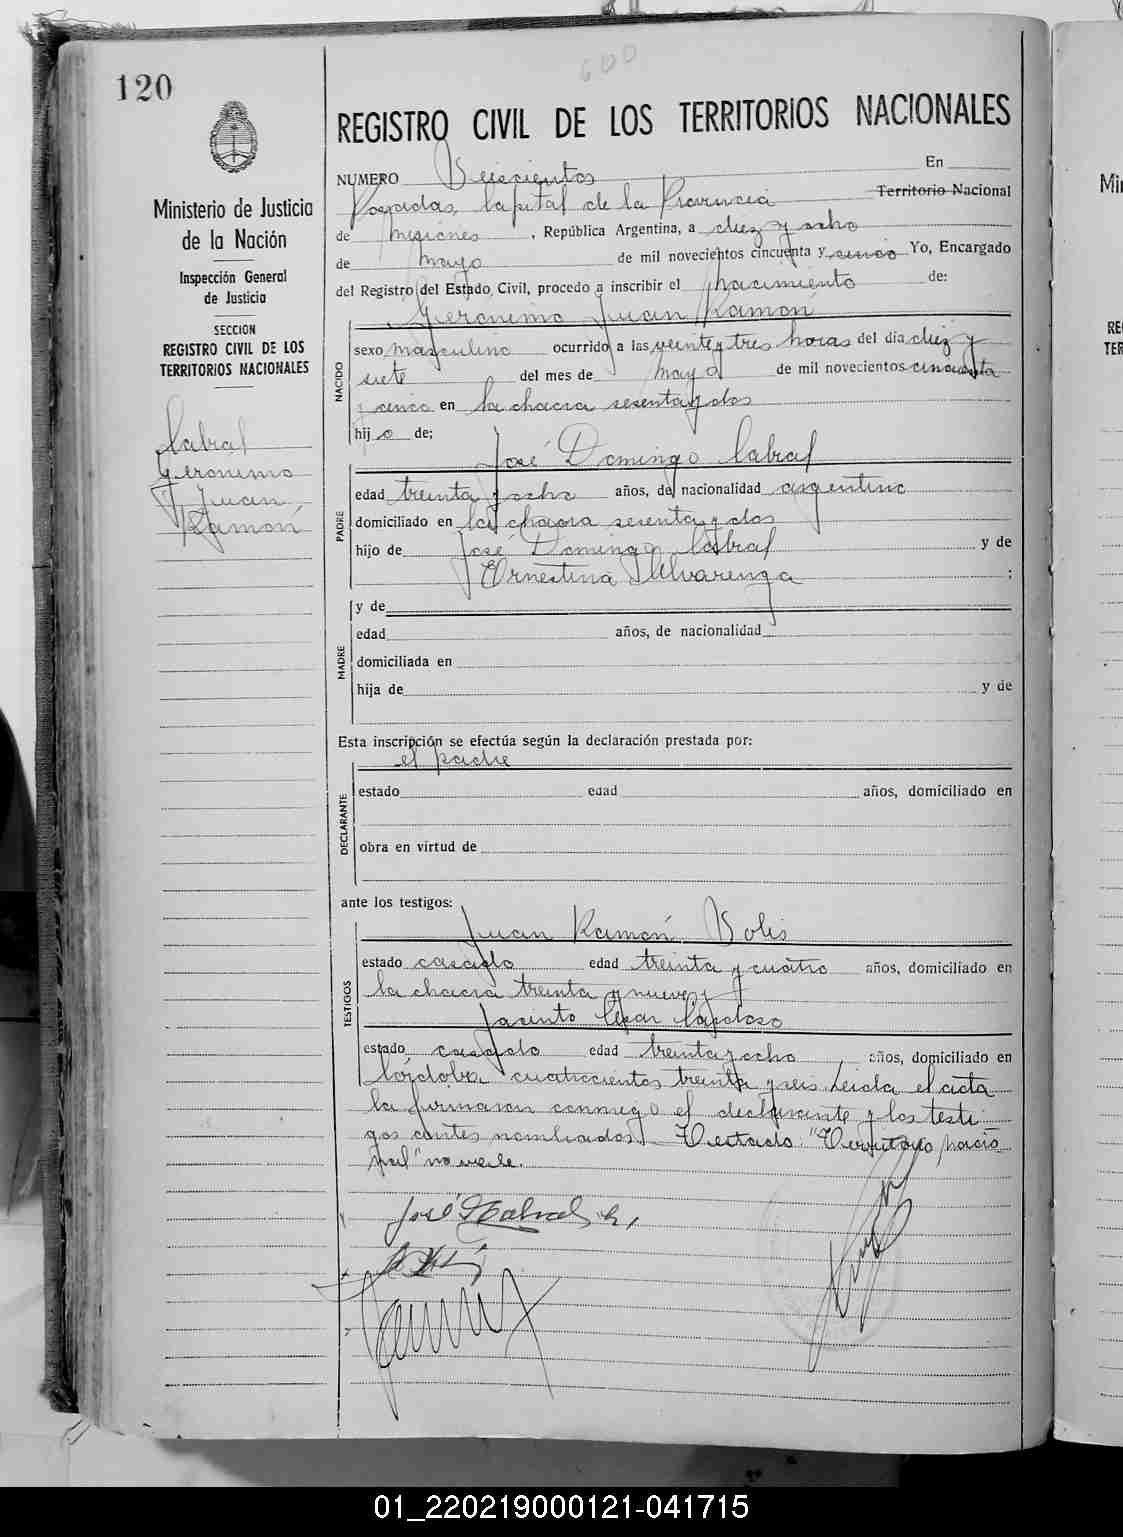 600
120
REGISTRO CIVIL DE LOS TERRITORIOS NACIONALES
Ministerio de Justicia
de la Nación
Inspección General
de Justicia
SECCION
REGISTRO CIVIL DE LOS
TERRITORIOS NACIONALES
Cabral
Gerónimo
Juan
Ramón
En
NUMERO Seiscientos
Posadas, Capital de la Provincia Territorio Nacional
de Misiones, República Argentina, a diez y ocho
de mayo de mil novecientos cincuenta y cinco Yo, Encargado
del Registro del Estado Civil, procedo a inscribir el nacimiento de:
Gerónimo Juan Ramón
NACIDO
sexo masculino ocurrido a las veinte y tres horas del día diez y
siete del mes de mayo de mil novecientos cincuenta
y cinco en la chacra sesenta y dos
hijo de;
José Domingo Cabral
PADRE
edad treinta y ocho años, de nacionalidad argentino
domiciliado en la chacra sesenta y dos
hijo de José Domingo Cabral y de
Ernestina Alvarenga ;
MADRE
y de
edad años, de nacionalidad
domiciliada en
hija de y de
Esta inscripción se efectúa según la declaración prestada por:
el padre
DECLARANTE
estado edad años, domiciliado en
obra en virtud de
ante los testigos:
Juan Ramón Solis
TESTIGOS
estado casado edad treinta y cuatro años, domiciliado en
la chacra treinta y nueve y
Jacinto César
estado casado edad treinta y ocho años, domiciliado en
Córdoba cuatrocientos treinta y seis. Leída el acta
la firmaron conmigo el declarante y los testi
gos antes nombrados. Testado: "Territorio nacio
nal" no vale.
José D Cabral h,
Mi
RE
TER
01_220219000121-041715